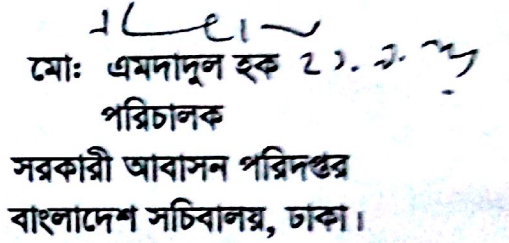 মোঃ এমদাদুল হক
পরিচালক
সরকারী আবাসন পরিদপ্তর
বাংলাদেশ সচিবালয়, ঢাকা।